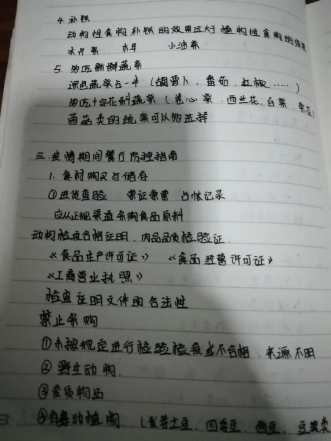 4. 补铁
动物性食物补铁的效果远大于植物性食物的效果
木耳
5. 多吃新鲜蔬菜
深色蔬菜占一半 (胡萝卜、番茄、红椒……)
多吃十字花科蔬菜 (卷心菜、西兰花、白菜、菜花)
菌菇类的蔬菜可以多选择
三. 疫情期间餐厅防控指南
1. 食材购买与储存
①进货查验 索证索票 台帐记录
应从正规渠道采购食品原料
动物检疫合格证明、肉品品质检验证
《食品生产许可证》 《食品经营许可证》
《工商营业执照》
检查证明文件的合法性
禁止采购
①未按规定进行检验检疫或不合格、来源不明
②野生动物
③变质物品
④有毒动植物 (发芽土豆、四季豆、豆浆类